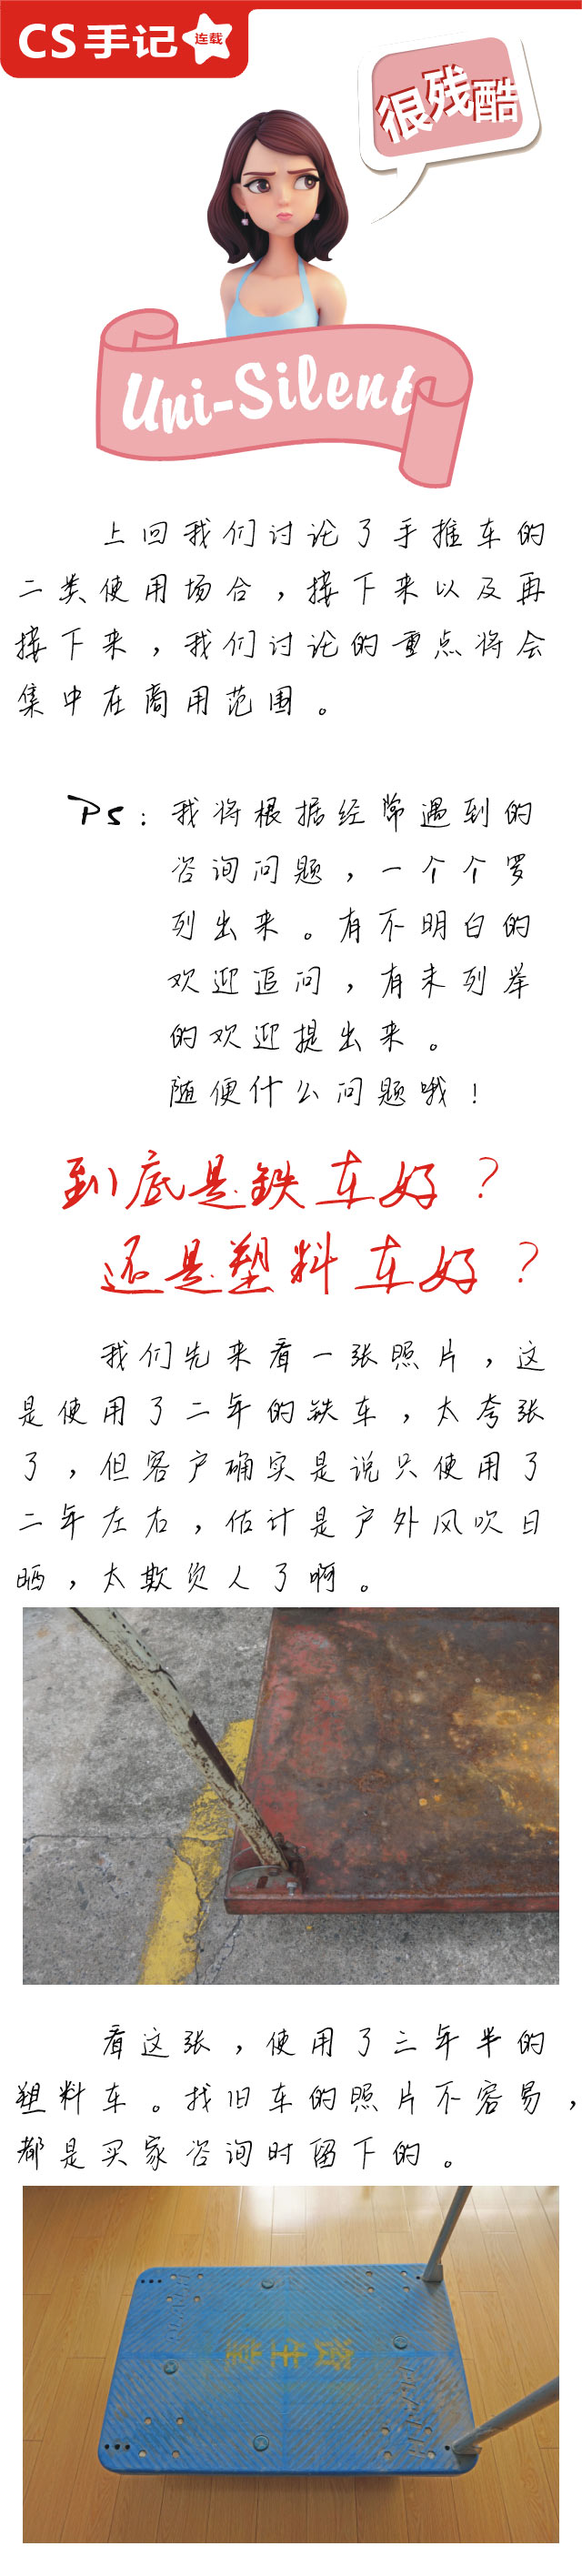 CS手记
连载
很残酷
Uni-Silent
上回我们讨论了手推车的
二类使用场合，接下来以及再
接下来，我们讨论的重点将会
集中在商用范围。
Ps：我将根据经常遇到的
咨询问题，一个个罗
列出来。有不明白的
欢迎追问，有未列举
的欢迎提出来。
随便什么问题哦！
到底是铁车好？
还是塑料车好？
我们先来看一张照片，这
是使用了二年的铁车，太夸张
了，但客户确实是说只使用了
二年左右，估计是户外风吹日
晒，太欺负人了啊。
看这张，使用了三年半的
塑料车。找旧车的照片不容易，
都是买家咨询时留下的。
資生堂